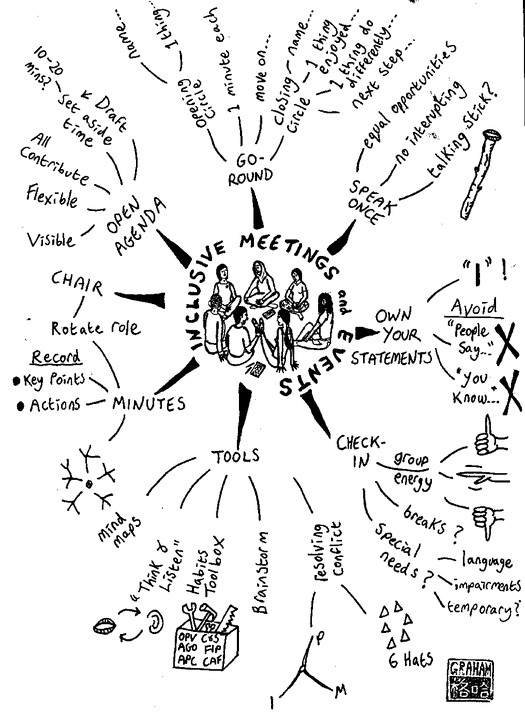 INCLUSIVE MEETINGS and EVENTS
GO-
ROUND
Opening
Circle
name...
1 thing...
1 minute each
move on...
closing
Circle
name...
1 thing
enjoyed...
1 thing do
differently...
next step...
SPEAK
ONCE
equal opportunities
no interupting
talking stick?
OWN
YOUR
STATEMENTS
"I" !
Avoid
"People
Say..."
"You
Know...
CHECK-
IN
group
energy
breaks?
Special
needs?
language
impairments
temporary?
TOOLS
resolving
Conflict
P
I
M
6 Hats
Brainstorm
Habits
Toolbox
OPV C&S
AGO FIP
APC CAF
"Think &
Listen"
Mind
maps
MINUTES
Record
Key Points
Actions
CHAIR
Rotate role
OPEN
AGENDA
Draft
Set aside
time
10-20
mins?
All
Contribute
Flexible
Visible
GRAHAM
格哈